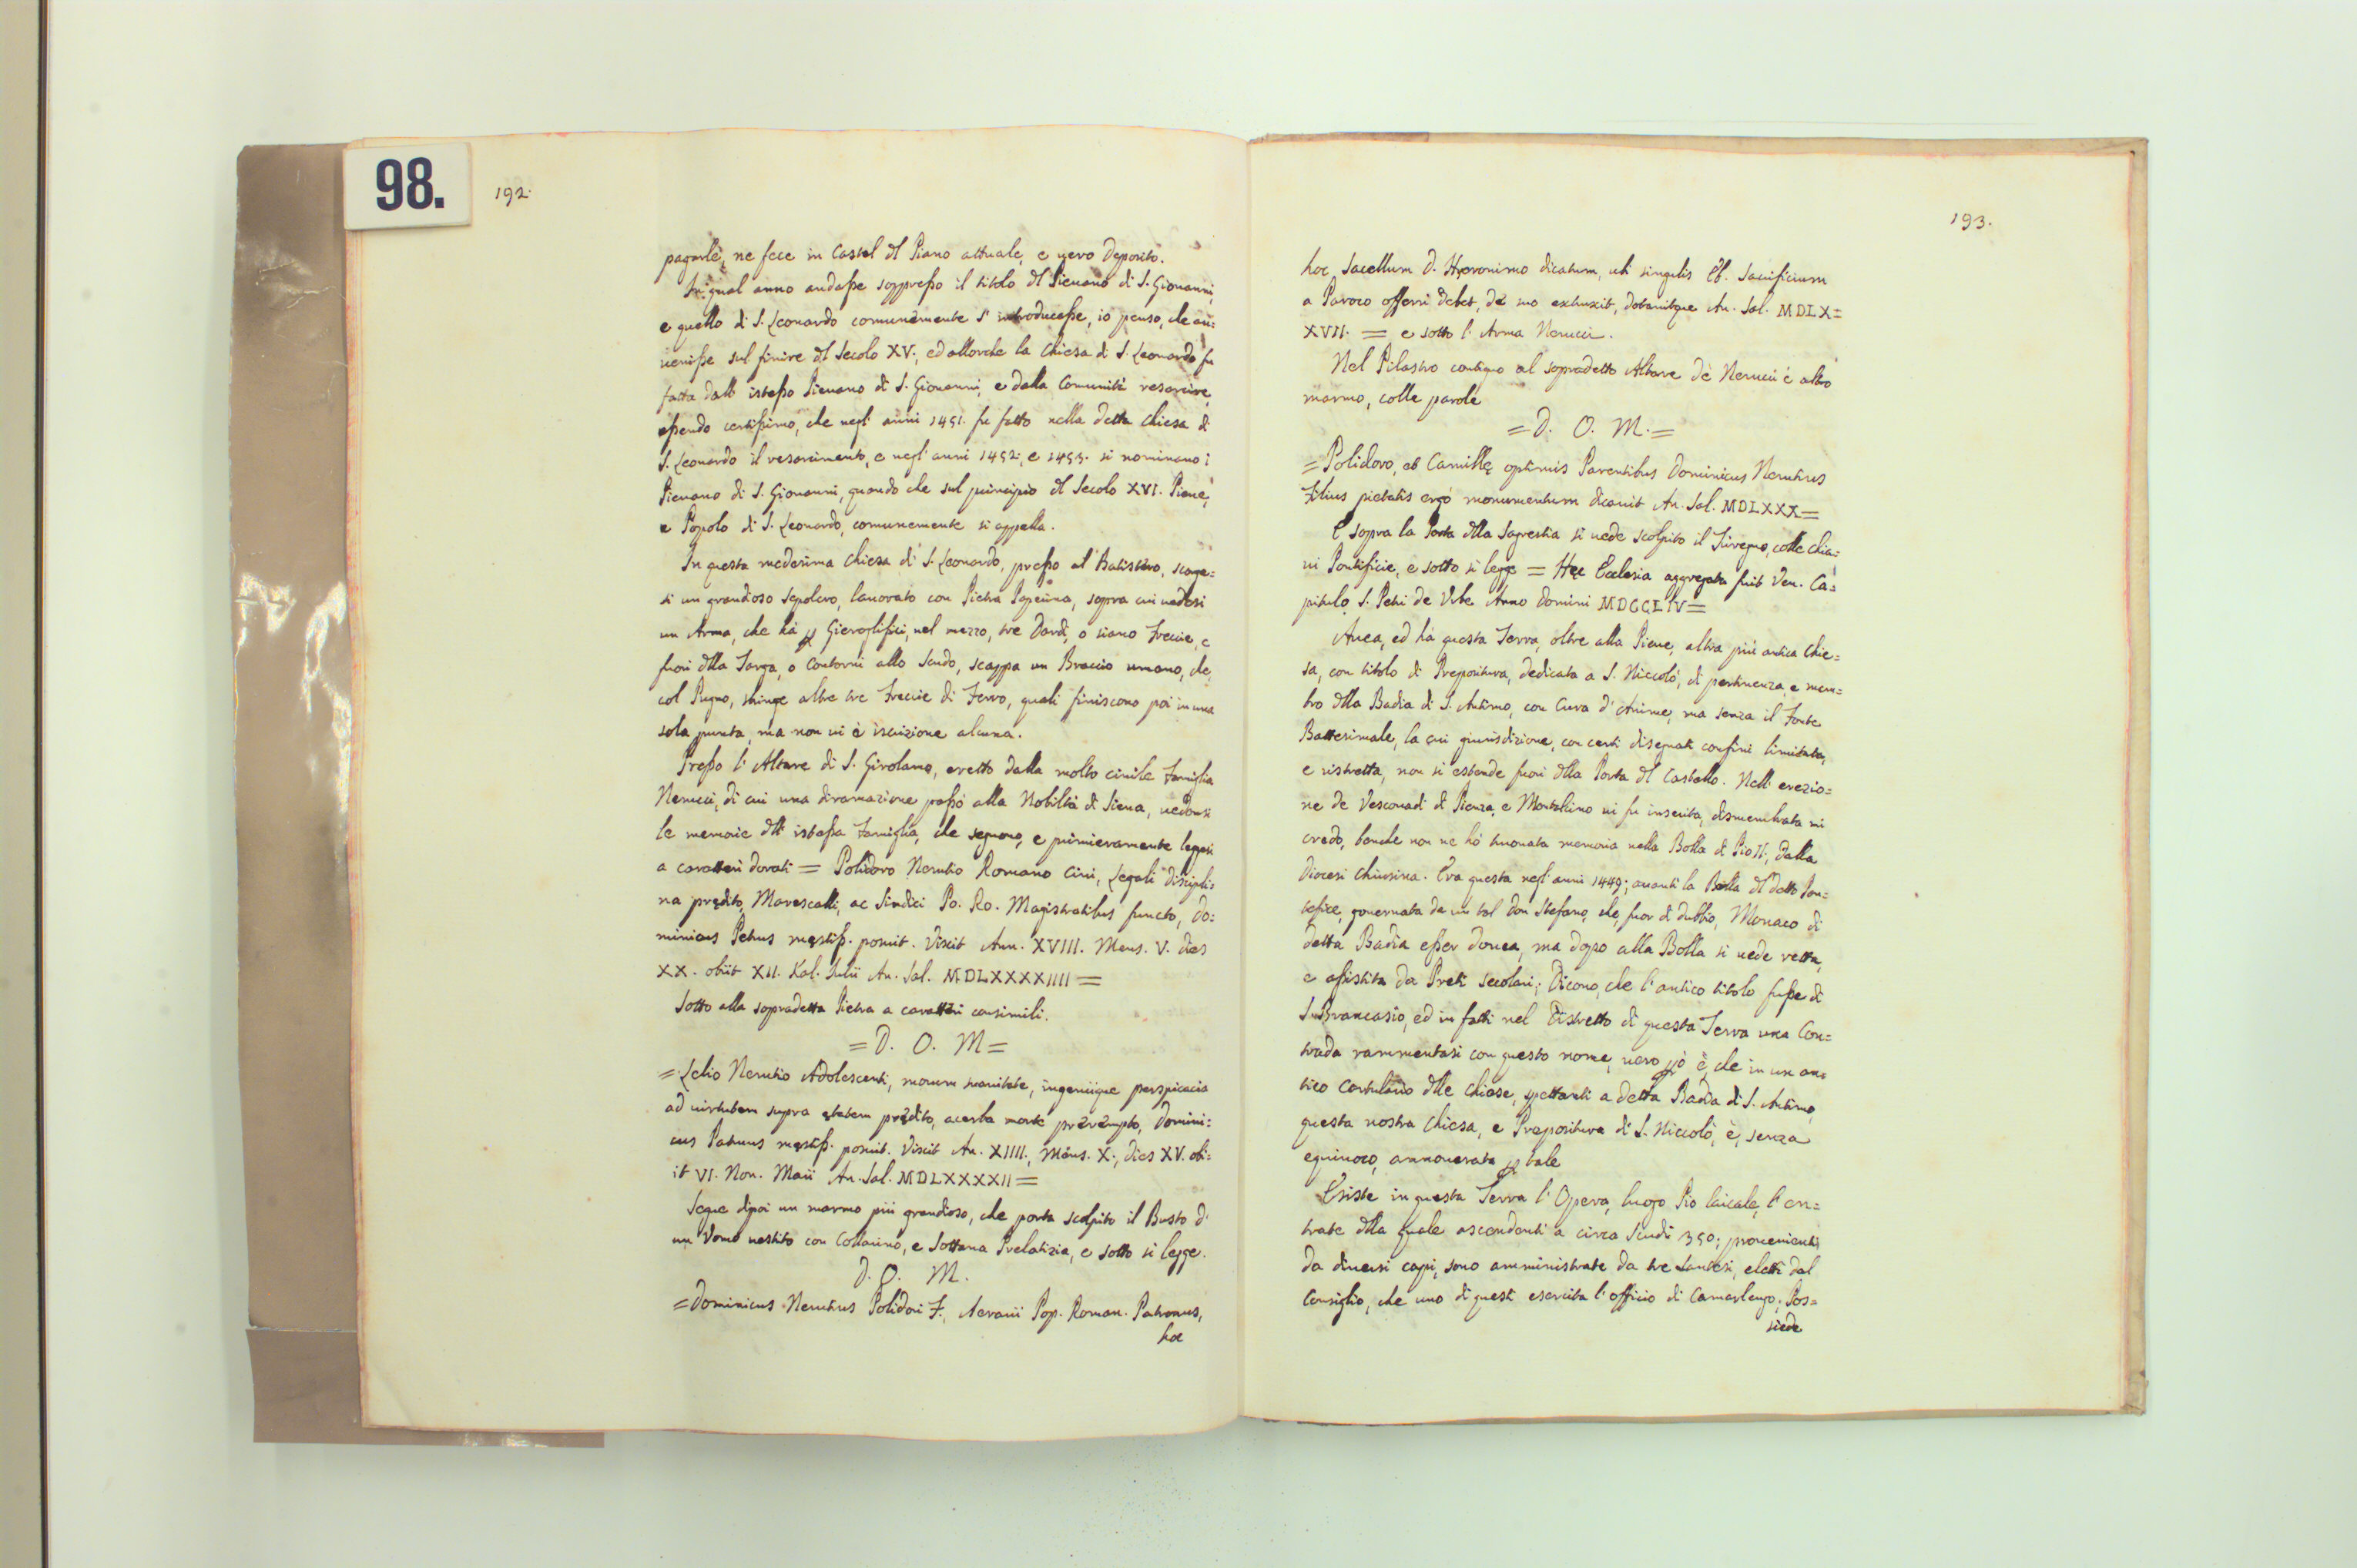 98.
192.
pagarle, ne fece in Castel dl Piano attuale, e vero Deposito.
In qual anno andaſse soppreſso il titolo dl Pievano di S. Giovanni,
e quello di S. Leonardo comunemente s' introduceſse, io penso, che au:
veniſse sul finire dl Secolo XV., ed allorche la Chiesa di S. Leonardo fu
fatta dallo isteſso Pievano di S. Giovanni, e dalla Comunità resarcire,
eſsendo certiſsimo, che negl' anni 1451. fu fatto nella detta Chiesa di
S. Leonardo il resarcimento, e negl' anni 1452., e 1453. si nominano i
Pievano di S. Giovanni, quando che sul principio dl Secolo XVI. Pieve,
e Popolo di S. Leonardo, comunemente si appella.
In questa medesima Chiesa di S. Leonardo, preſso al Batistero, scorge=
si un grandioso Sepolcro, lavorato con Pietra Paperina, sopra cui vedesi
un Arma, che hà p Gieroglifici, nel mezzo, tre Dardi, o siano Freccie, e
fuori dlla Targa, o Contorni allo Scudo, scappa un Braccio umano, che,
col Pugno, stringe altre tre Freccie di Ferro, quali finiscono poi in una
sola punta, ma non vi è iscrizione alcuna.
Preſso l' Altare di S. Girolamo, eretto dalla molto civile Famiglia
Nerucci, di cui una diramazione paſsò alla Nobiltà di Siena, vedonsi
le memorie dll' isteſsa Famiglia, che seguono, e primieramente legesi
a caratteri dorati = Polidoro Nerutio Romano Civi, Legali discipli=
na prędito, Marescalli, ac Sindici Po. Ro. Magistratibus functo, Do:
minicus Petrus męstiſs. posuit. Vixit Ann. XVIII. Mens. V. dies
XX. obiit XII. Kal. Julii An. Sal. MDLXXXXIIII =
Sotto alla sopradetta Pietra a caratteri consimili.
= D. O. M =
= Lelio Nerutio Adolescenti, morum suavitate, ingeniique perspicacia
ad virtutem supra ętatem prędito, acerba morte prærempto, Domini:
cus Patruus męstiſs. posuit. Vixit An. XIIII., Mens. X., dies XV. obi:
it VI. Non. Maii An. Sal. MDLXXXXII =
Segue dipoi un marmo più grandioso, che porta scolpito il Busto d'
un Vomo vestito con Collarino, e Sottana Prelatizia, e sotto si legge.
D. O. M.
= Dominicus Nerutius Polidori F., Aerarii Pop. Roman. Patronus,
hoc
193.
hoc Sacellum D. Hyeronimo dicatum, ubi singulis Eb. Sacrificium
a Paroco offerri debet, de suo extruxit, dotavitque An. Sal. MDLX=
XVII. = e sotto l' Arma Nerucci.
Nel Pilastro contiguo al sopradetto Altare de Nerucci è altro
marmo, colle parole
= D. O. M. =
= Polidoro, et Camillę optimis Parentibus Dominicus Nerutius
Filius pietatis ergò monumentum dicavit An. Sal. MDLXXX =
E sopra la Porta dlla Sagrestia si vede scolpito il Triregno, colle chia:
vi Pontificie, e sotto si legge = Hęc Ecclesia aggregata fuit Ven. Ca=
pitulo S. Petri de Vrbe Anno Domini MDCCLIV =
Avea, ed hà questa Terra, oltre alla Pieve, altra più antica Chie=
sa, con titolo di Prepositura, dedicata a S. Niccolò, di pertinenza, e mem=
bro dlla Badia di S. Antimo, con Cura d' Anime, ma senza il Fonte
Battesimale, la cui giurisdizione, con certi disegnati confini limitata,
e ristretta, non si estende fuori dlla Porta dl Castello. Nell' erezio=
ne de Vescovadi di Pienza, e Montalcino vi fu inserita, dismembrata mi
credo, benche non ne hò truovata memoria nella Bolla di Pio II., dalla
Diocesi Chiusina. Era questa negl' anni 1449; avanti la Bolla dl detto Pon=
tefice, governata da un tal Don Stefano, che, fuor di dubbio, Monaco di
detta Badia eſser dovea, ma dopo alla Bolla si vede retta,
e aſsistita da Preti Secolari; Dicono, che l' antico titolo fuſse di
S. Brancasio, ed in fatti nel Distretto di questa Terra una Con=
trada rammentasi con questo nome, vero pò è, che in un an=
tico Cartulario dlle Chiese, spettanti a detta Badia di S. Antimo,
questa nostra Chiesa, e Prepositura di S. Niccolò, è, senza
equivoco, annoverata p tale
Esiste in questa Terra l' Opera, luogo Pio laicale, l' en=
trate dlla quale ascendenti a circa Scudi 350; provenienti
da diversi capi, sono amministrate da tre Santesi, eletti dal
Consiglio, che uno di questi esercita l' officio di Camarlengo; Pos=
siede